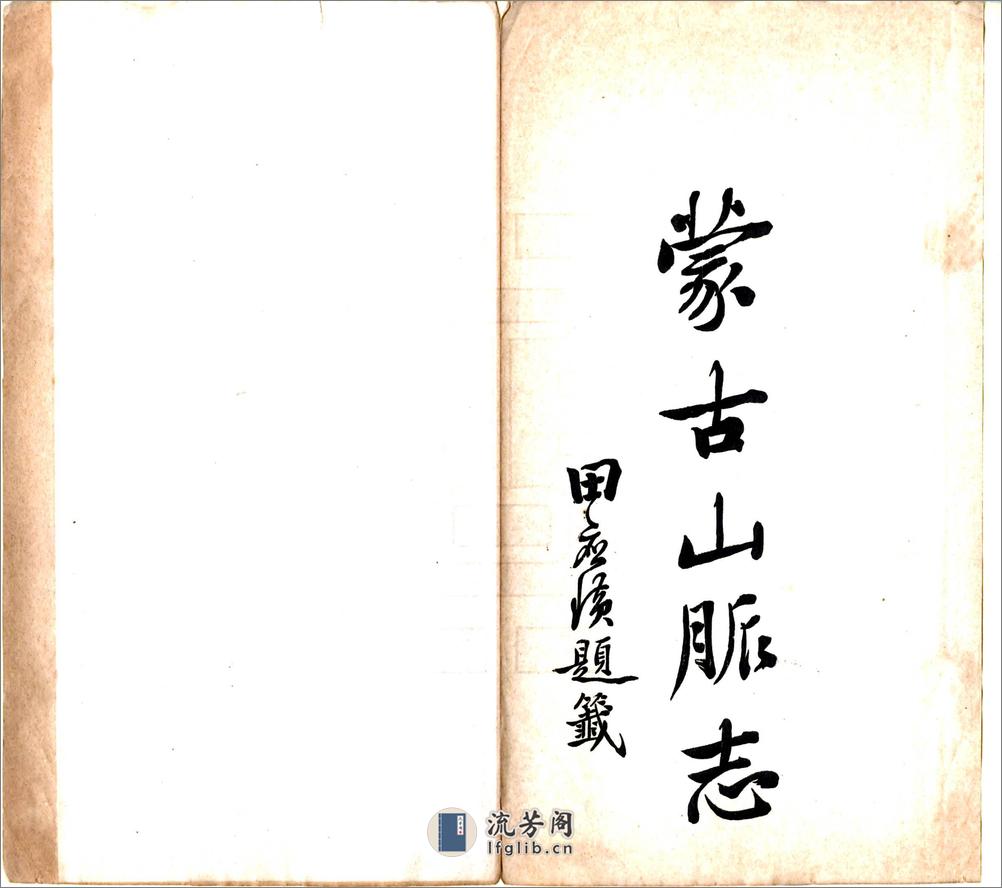 蒙古山脈志
田應璜題籤
流芳阁
lfglib.cn